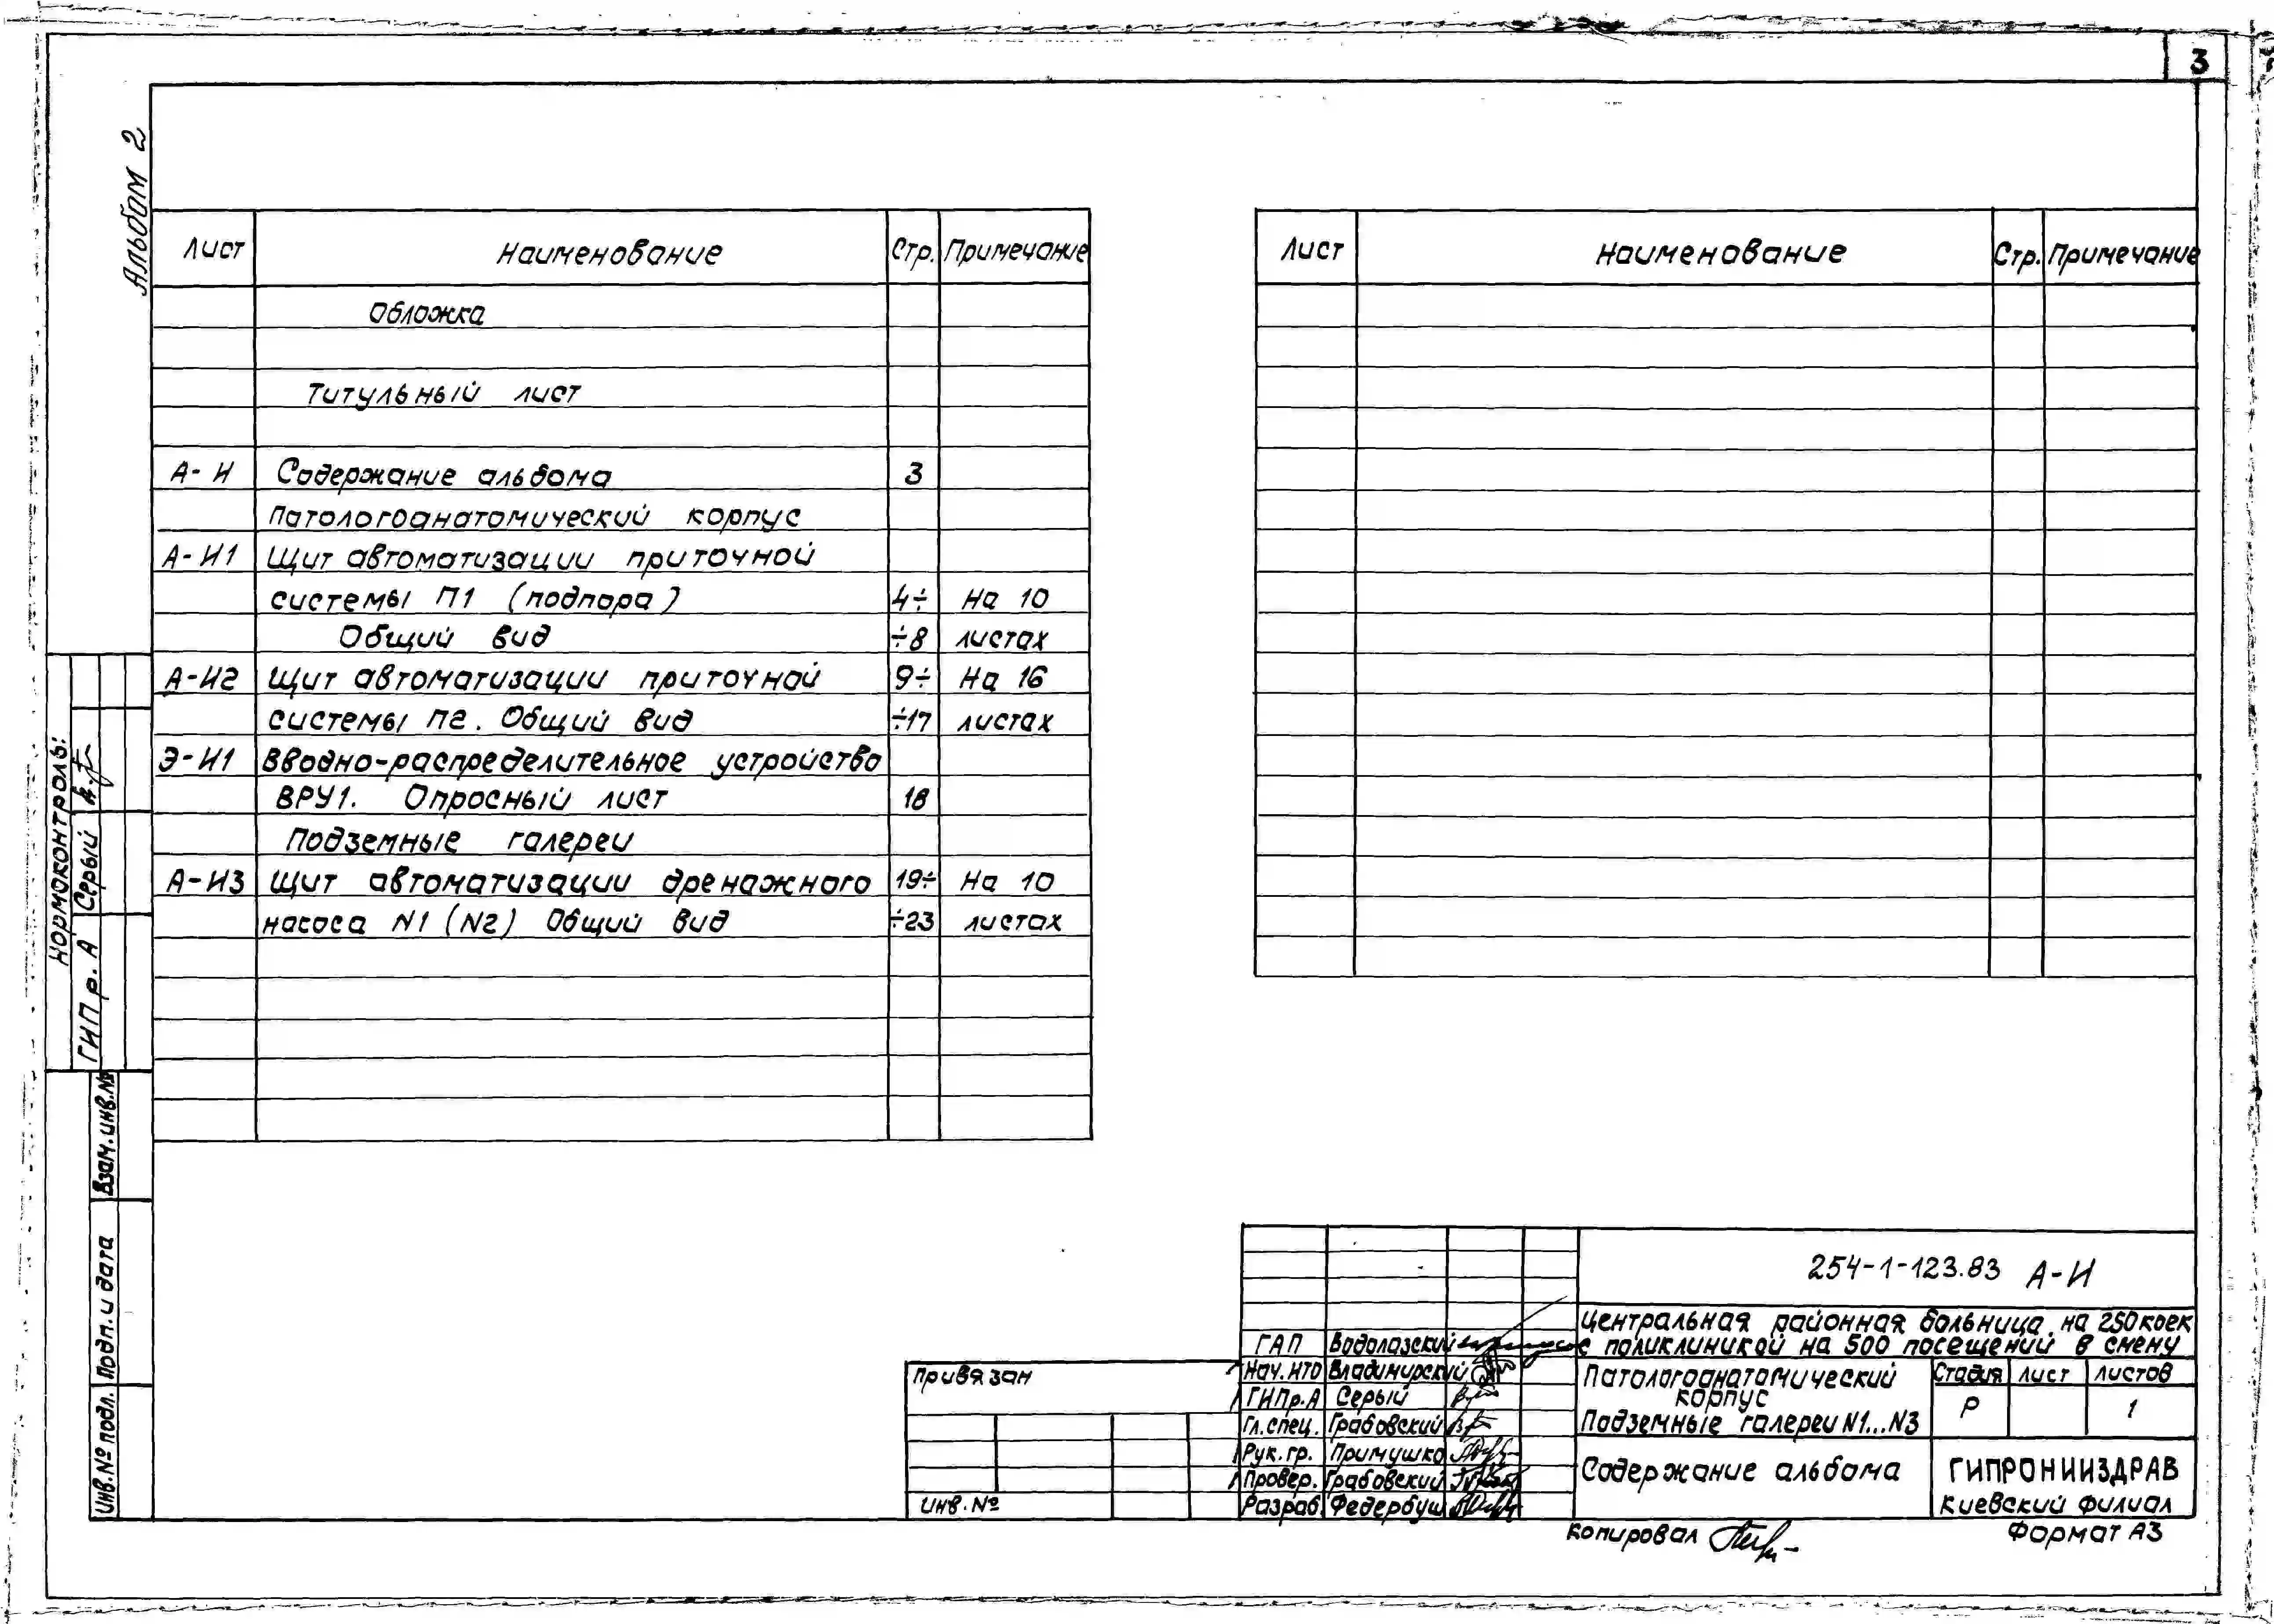 3
Альбом 2
Лист Наименование Стр. Примечание
Обложка
Титульный лист
А-И Содержание альбома 3
Патологоанатомический корпус
А-И1 Щит автоматизации приточной
системы П1 (подпора) 4÷ На 10
Общий вид ÷8 листах
А-И2 Щит автоматизации приточной 9÷ На 16
системы П2. Общий вид ÷17 листах
Э-И1 Вводно-распределительное устройство
ВРУ1. Опросный лист 18
Подземные галереи
А-И3 Щит автоматизации дренажного 19÷ На 10
насоса N1 (N2) Общий вид ÷23 листах
Лист Наименование Стр. Примечание
Нормоконтроль:
ГИП р. А Серый
Взам.инв.№
Подп. и дата
Инв.№ подл.
Привязан
Инв. №
ГАП Водолазский
Нач. ИТО Владимирский
ГИПр.А Серый
Гл.спец. Грабовский
Рук.гр. Примушко
Провер. Грабовский
Разраб. Федербуш
254-1-123.83 А-И
Центральная районная больница на 250 коек
с поликлиникой на 500 посещений в смену
Патологоанатомический
корпус
Подземные галереи N1...N3
Стадия Лист Листов
Р 1
Содержание альбома
ГИПРОНИИЗДРАВ
Киевский филиал
Копировал
Формат А3